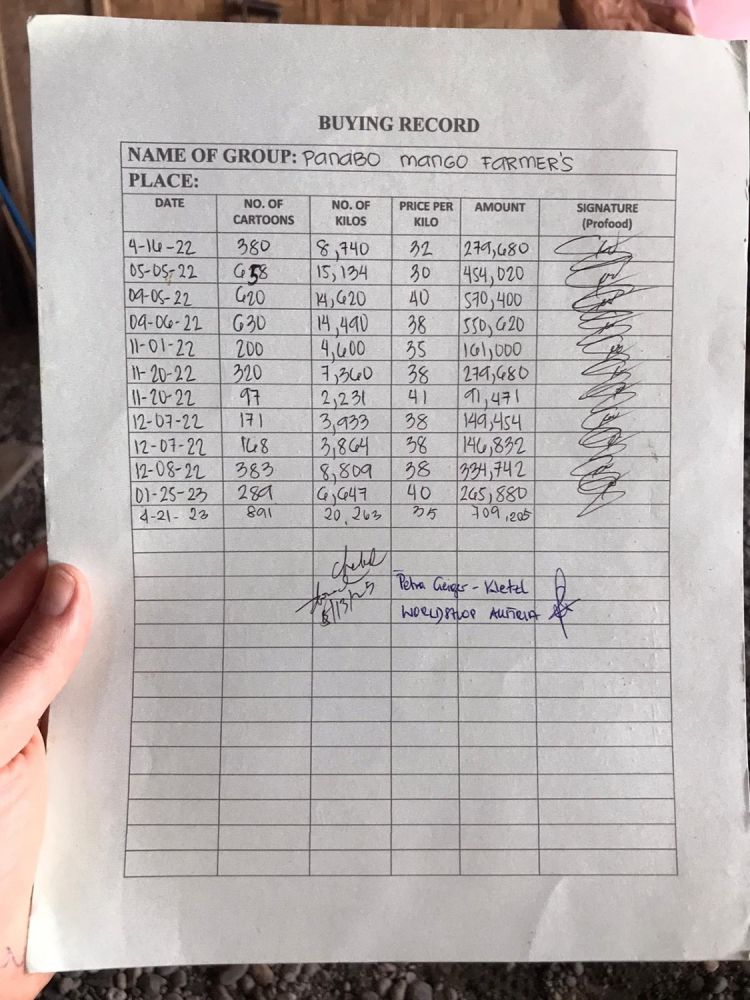 BUYING RECORD
NAME OF GROUP: PANABO MANGO FARMER'S
PLACE:
DATE NO. OF CARTOONS NO. OF KILOS PRICE PER KILO AMOUNT SIGNATURE (Profood)
4-16-22 380 8,740 32 279,680
05-05-22 658 15,134 30 454,020
09-05-22 620 14,620 40 570,400
09-06-22 630 14,490 38 550,620
11-01-22 200 4,600 35 161,000
11-20-22 320 7,360 38 279,680
11-20-22 97 2,231 41 91,471
12-07-22 171 3,933 38 149,454
12-07-22 168 3,864 38 146,832
12-08-22 383 8,809 38 334,742
01-25-23 289 6,647 40 265,880
4-21-23 891 20,263 35 709,205
Petra Geiger -
WORLDSHOP AUSTRIA